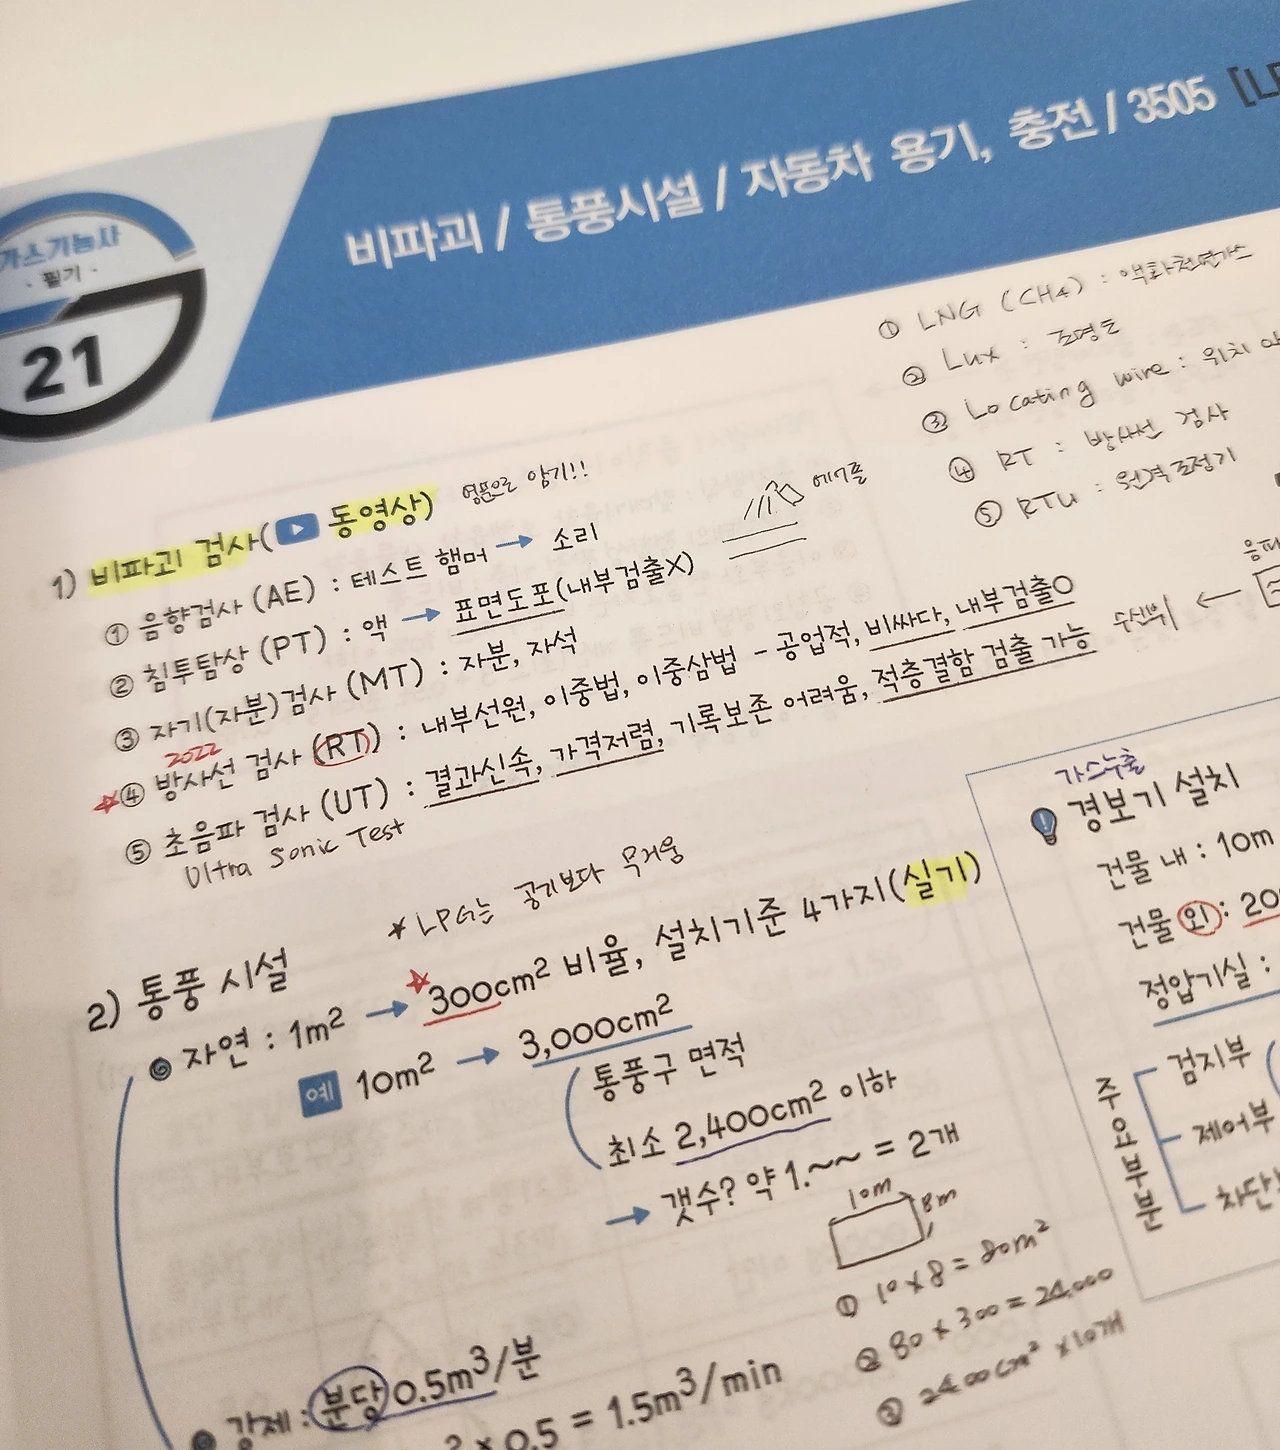 비파괴 / 통풍시설 / 자동차 용기, 충전 / 3505 [LP
가스기능사
· 필기 ·
21
① LNG (CH4) : 액화천연가스
② Lux : 조명도
③ Locating wire : 위치
④ RT : 방사선 검사
⑤ RTU : 원격조정기
1) 비파괴 검사(동영상) 영문으로 암기!!
① 음향검사 (AE) : 테스트 햄머 → 소리
② 침투탐상 (PT) : 액 → 표면도포(내부검출X)
③ 자기(자분)검사 (MT) : 자분, 자석
2022
☆④ 방사선 검사 (RT) : 내부선원, 이중법, 이중삼법 - 공업적, 비싸다, 내부검출O
⑤ 초음파 검사 (UT) : 결과신속, 가격저렴, 기록보존 어려움, 적층결함 검출 가능
Ultra Sonic Test
음파
←
★ LPG는 공기보다 무거움
2) 통풍 시설
자연 : 1m² → ☆300cm² 비율, 설치기준 4가지(실기)
예 10m² → 3,000cm²
통풍구 면적
최소 2,400cm² 이하
→ 갯수? 약 1.~~ = 2개
10m
8m
① 10×8 = 80m²
② 80 × 300 = 24,000
③ 2400cm² ×10개
강제 : 분당 0.5m³/분
× 0.5 = 1.5m³/min
가스누출
경보기 설치
건물 내 : 10m
건물 외 : 20
정압기실 :
주요부분
검지부
제어부
차단